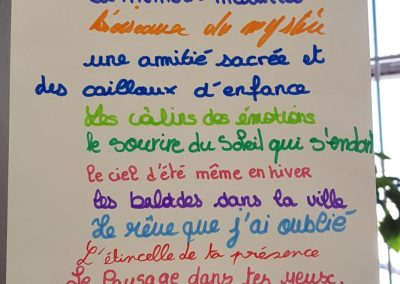 du mystère
une amitié sacrée et
des cailloux d'enfance
Les câlins des émotions
le sourire du Soleil qui s'endort
le ciel d'été même en hiver
Les balades dans la ville
Le rêve que j'ai oublié
L'étincelle de ta présence
Le Paysage dans tes yeux.